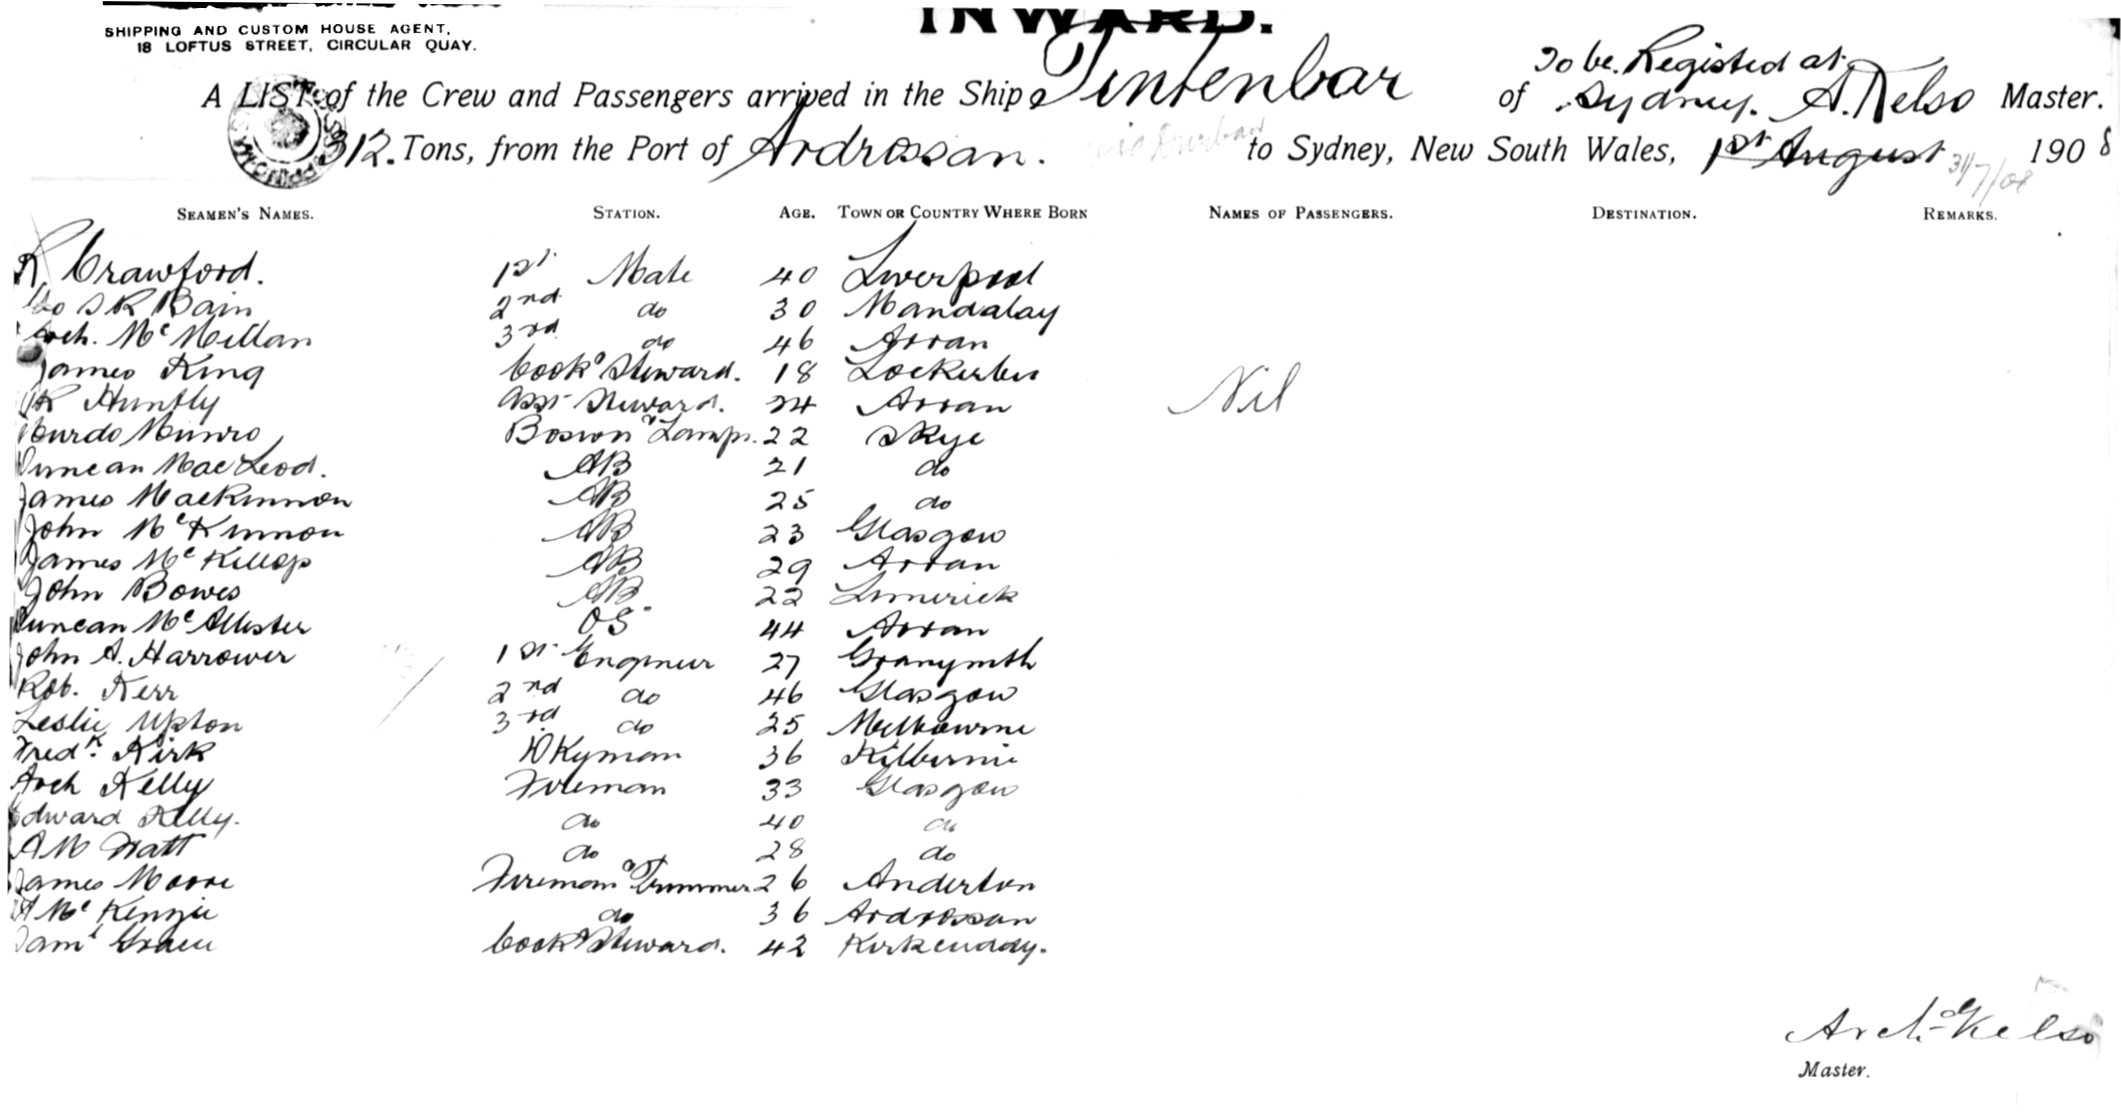 INWARD.
SHIPPING AND CUSTOM HOUSE AGENT,
18 LOFTUS STREET, CIRCULAR QUAY.
To be Registed at
A LIST of the Crew and Passengers arrived in the Ship Tintenbar of Sydney. A. Kelso Master.
312. Tons, from the Port of Ardrossan. via Durban to Sydney, New South Wales, 1st August 31/7/08 1908
SEAMEN'S NAMES. STATION. AGE. TOWN OR COUNTRY WHERE BORN NAMES OF PASSENGERS. DESTINATION. REMARKS.
R Crawford. 1st Mate 40 Liverpool
Geo S R Bain 2nd do 30 Mandalay
Arch. McMillan 3rd do 46 Arran
James King Cook & Steward. 18 Lockerbie
Huntly Asst Steward. 24 Arran Nil
Murdo Munro Boswn & Lamps. 22 Skye
Duncan MacLeod. AB 21 do
James Mackinnon AB 25 do
John McKinnon AB 23 Glasgow
James McKillop AB 29 Arran
John Bowes AB 22 Limerick
Duncan McAllister OS 44 Arran
John A. Harrower 1st Engineer 27 Grangmth
Rob. Kerr 2nd do 46 Glasgow
Leslie Upton 3rd do 25 Melbourne
Fredk. Kirk Dkyman 36 Kilbirnie
Arch Kelly Fireman 33 Glasgow
Edward Kelly. do 40 do
A M Watt do 28 do
James Moore Fireman & Trimmer 26 Anderton
A McKenzie do 36 Ardrossan
Saml Cook & Steward. 42 Kirkcuddy.
Archd Kelso
Master.